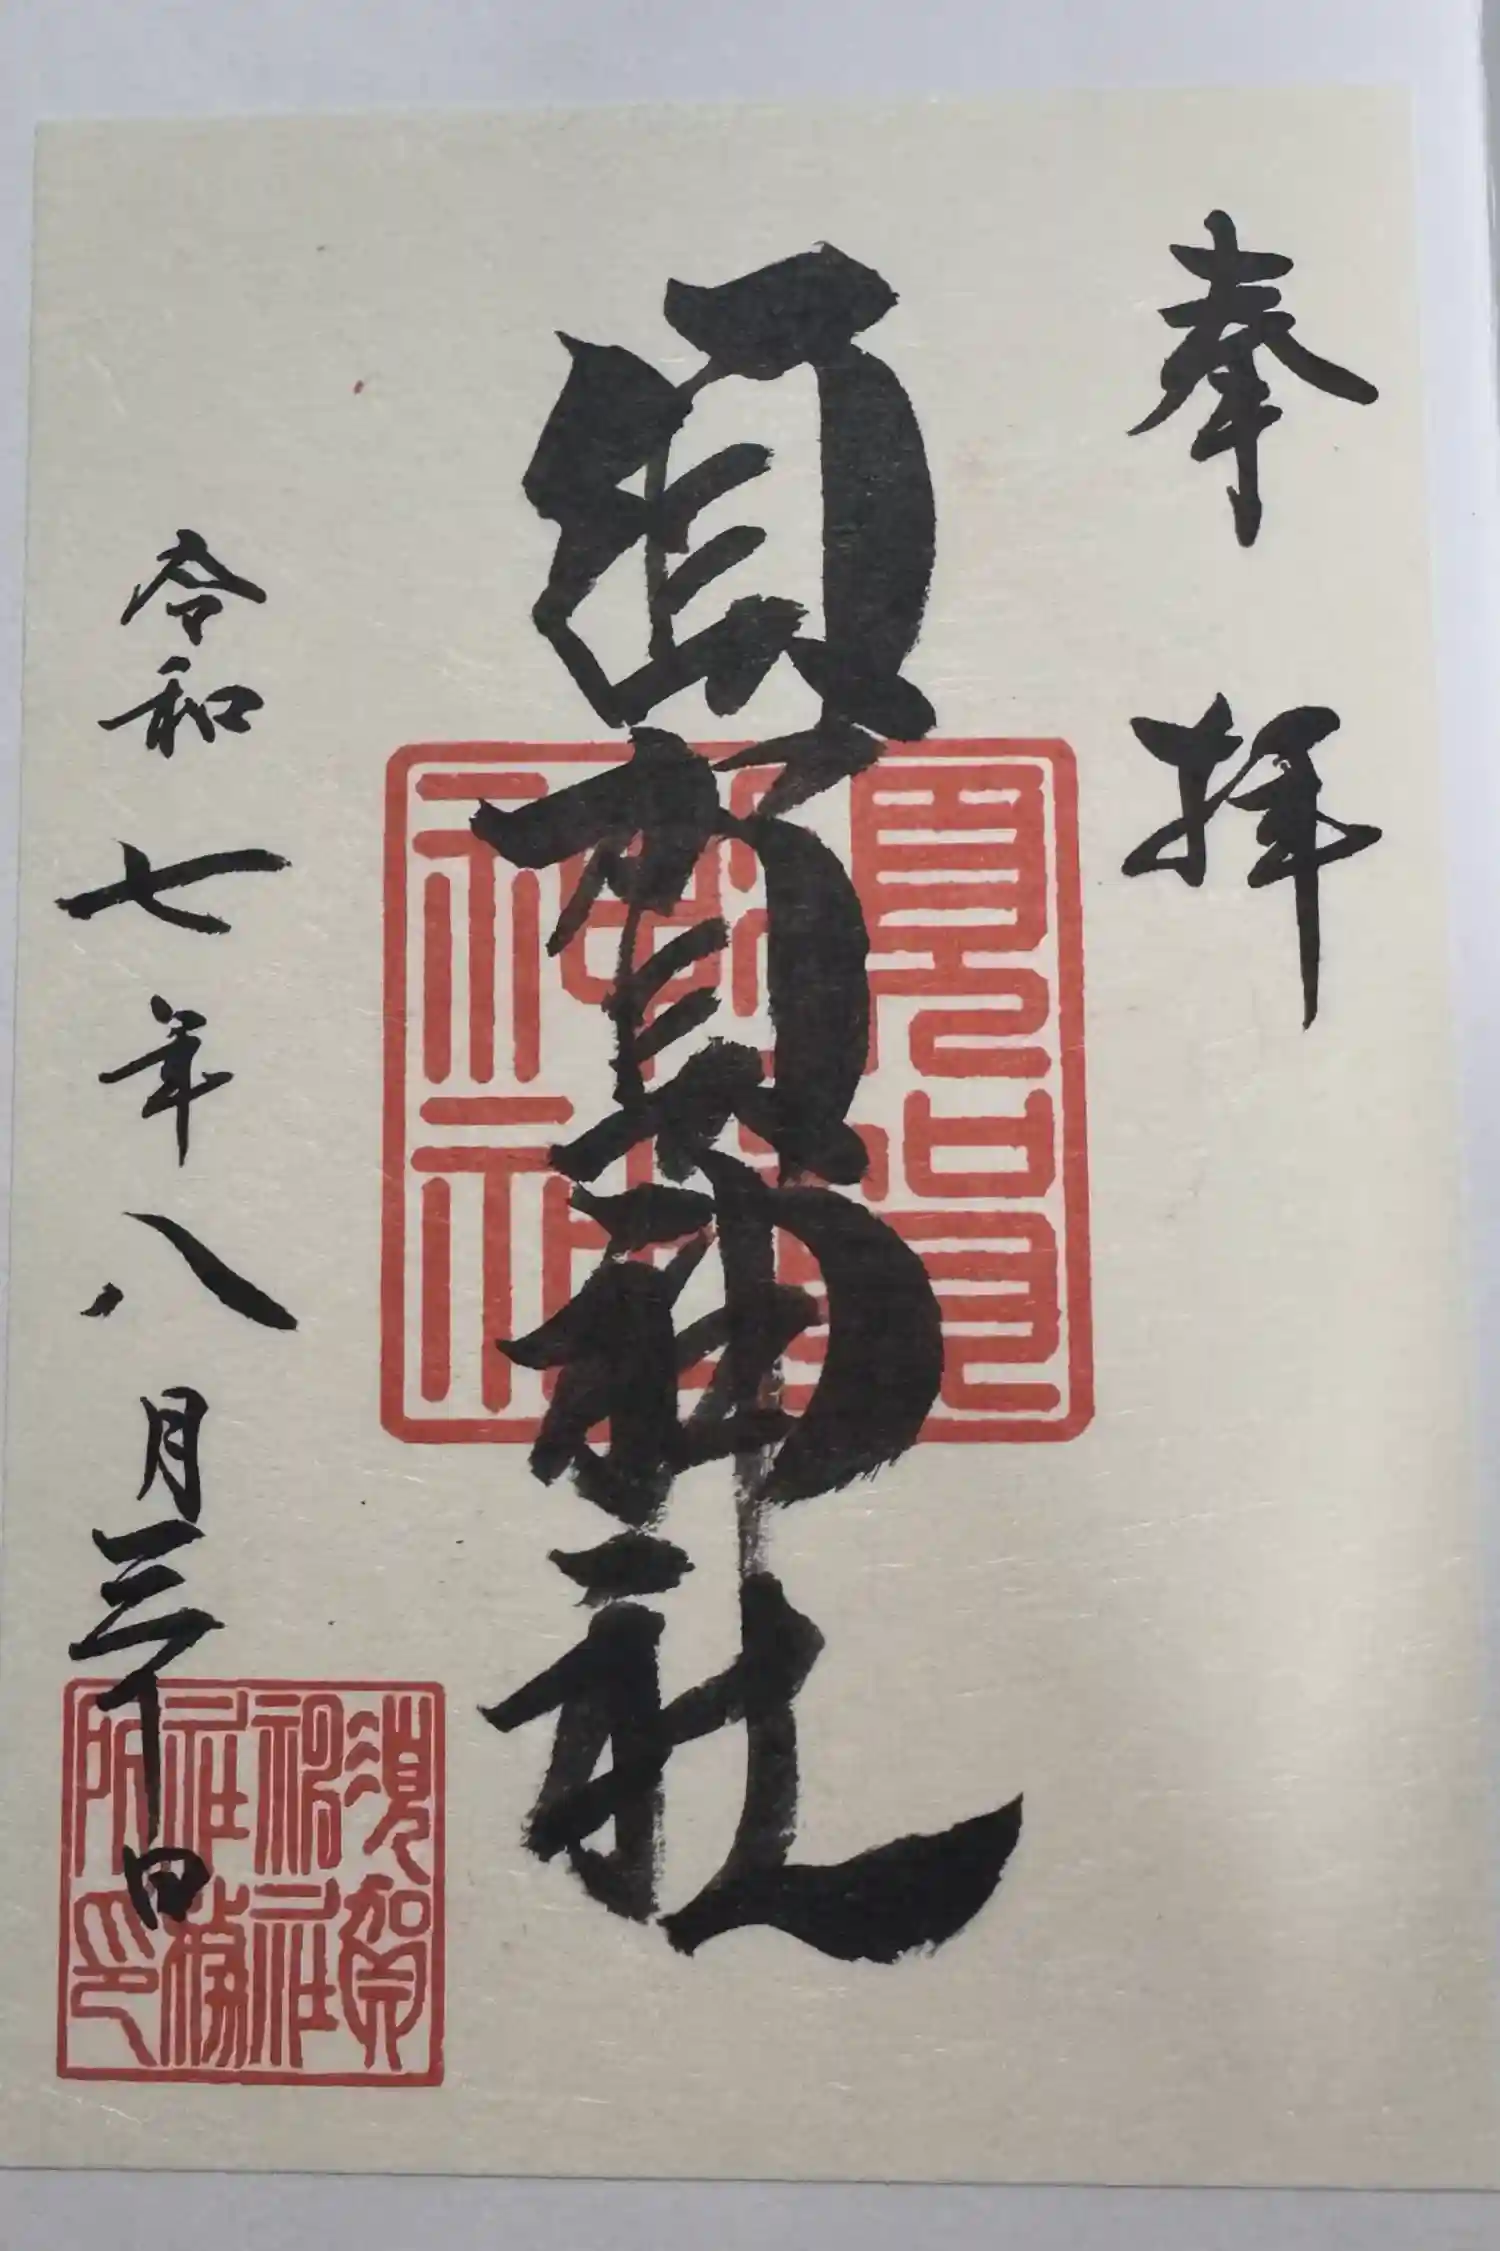 奉拝
須賀神社
令和七年八月三十日
須賀神社
須賀神社社務所印